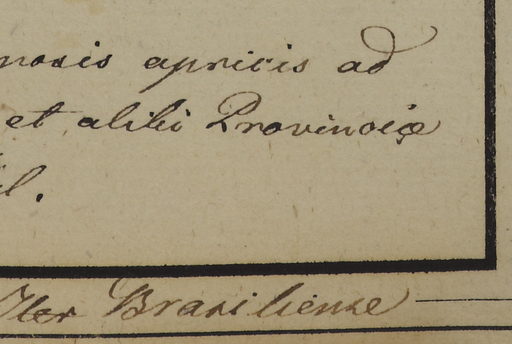 nosis apricis ad
et alibi Provinciæ
l.
Iter Brasiliense